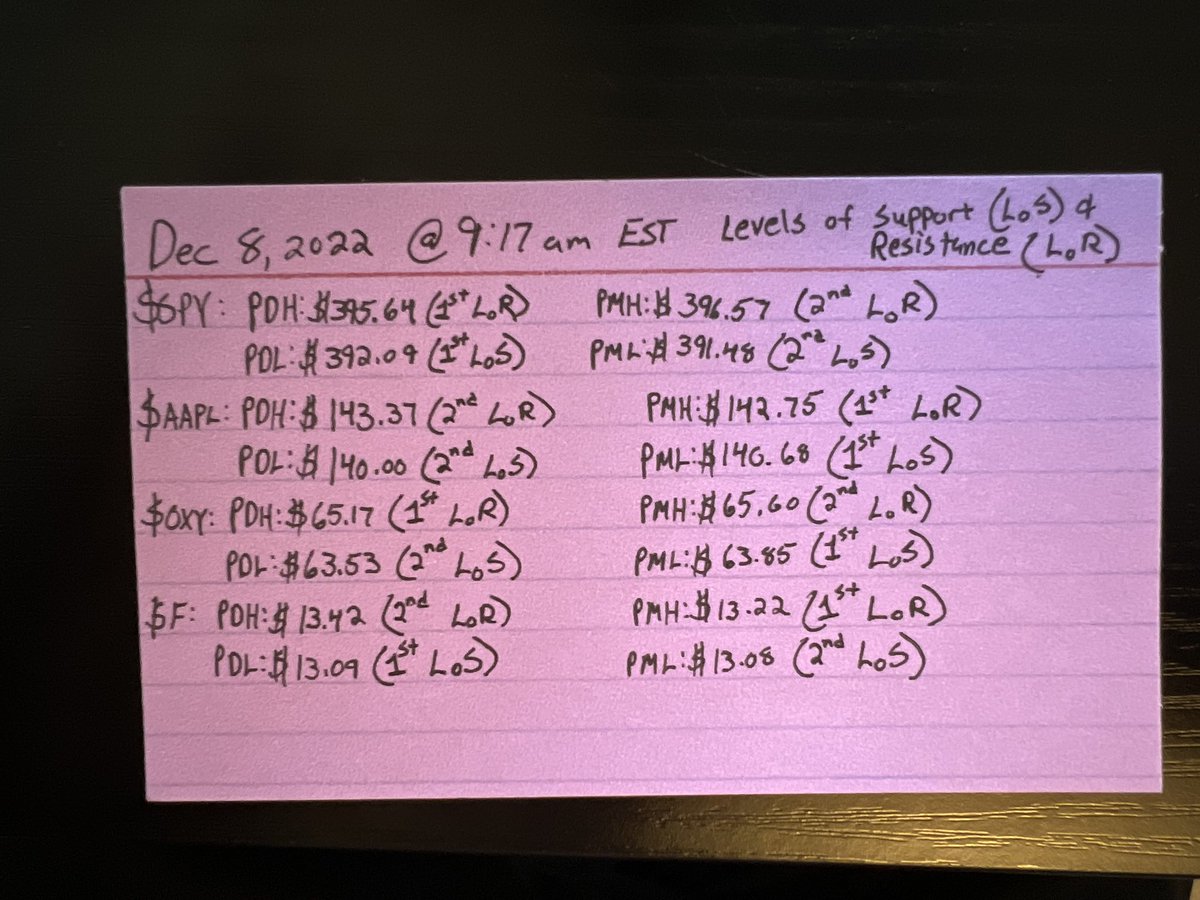 Dec 8, 2022 @ 9:17 am EST Levels of Support (LoS) &
Resistance (LoR)
$SPY: PDH: $395.64 (1st LoR) PMH: $396.57 (2nd LoR)
PDL: $392.09 (1st LoS) PML: $391.48 (2nd LoS)
$AAPL: PDH: $143.37 (2nd LoR) PMH: $142.75 (1st LoR)
PDL: $140.00 (2nd LoS) PML: $140.68 (1st LoS)
$OXY: PDH: $65.17 (1st LoR) PMH: $65.60 (2nd LoR)
PDL: $63.53 (2nd LoS) PML: $63.85 (1st LoS)
$F: PDH: $13.42 (2nd LoR) PMH: $13.22 (1st LoR)
PDL: $13.09 (1st LoS) PML: $13.08 (2nd LoS)